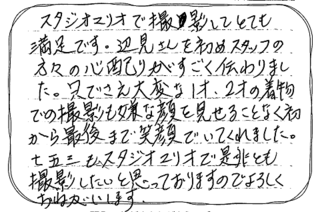 スタジオエリオで撮影してとても
満足です。辺見さんを初めスタッフの
方々の心配りがすごく伝わりまし
た。只でさえ大変な1才、2才の着物
での撮影も嫌な顔を見せることなく初
から最後まで笑顔でいてくれました。
七五三もスタジオエリオで是非とも
撮影したいと思っておりますのでよろしく
おねがいします。